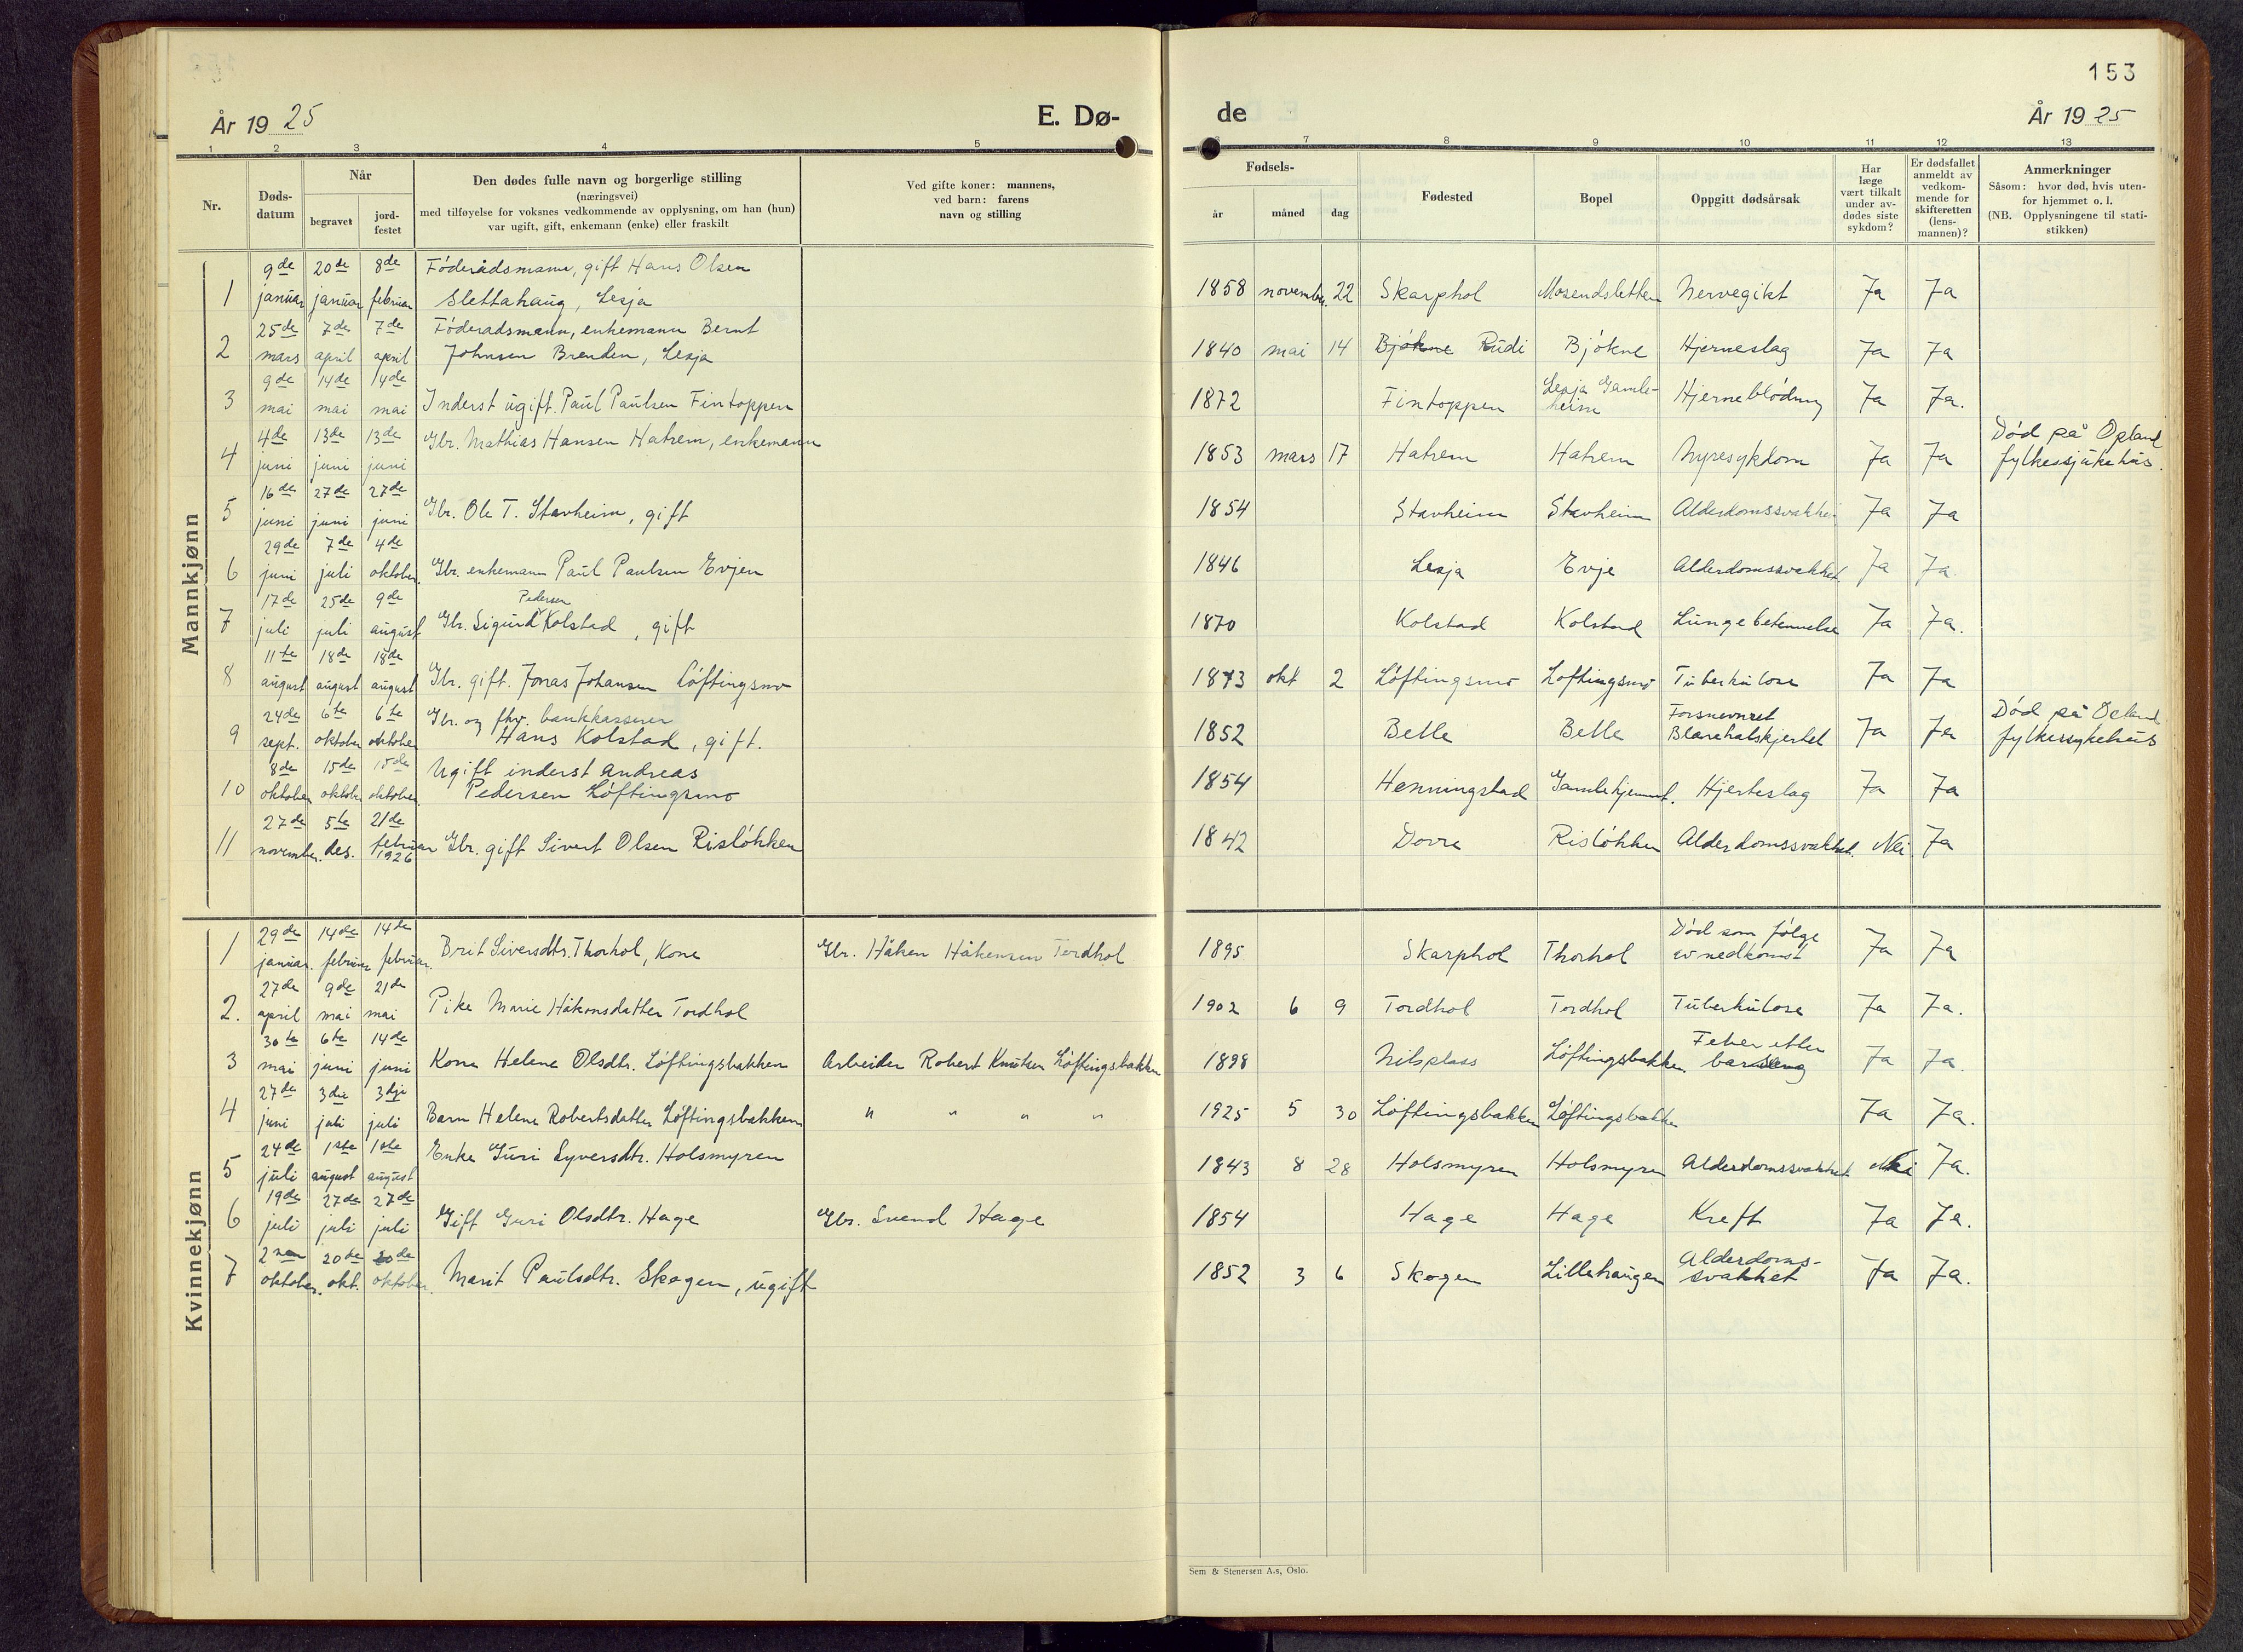 153
År 1925 E. Dø- de År 1925
1 2 3 4 5 6 7 8 9 10 11 12 13
Nr.
Døds-
datum
Når
begravet
jord-
festet
Den dødes fulle navn og borgerlige stilling
(næringsvei)
med tilføyelse for voksnes vedkommende av opplysning, om han (hun)
var ugift, gift, enkemann (enke) eller fraskilt
Ved gifte koner: mannens,
ved barn: farens
navn og stilling
Fødsels-
år måned dag
Fødested
Bopel
Oppgitt dødsårsak
Har
læge
vært tilkalt
under av-
dødes siste
sykdom?
Er dødsfallet
anmeldt av
vedkom-
mende for
skifteretten
(lens-
mannen)?
Anmerkninger
Såsom: hvor død, hvis uten-
for hjemmet o. l.
(NB. Opplysningene til stati-
stikken)
Mannkjønn
9de 20de 8de Föderådsmann, gift Hans Olsen
1 januar januar februar Slettahaug, Lesja 1858 november 22 Skarphol Mosendsletten Nervegikt Ja Ja
25de 7de 7de Föderadsmann, enkemann Bernt
2 mars april april Johnsen Brenden, Lesja 1840 mai 14 Bjökne Rudi Bjökne Hjerneslag Ja Ja
9de 14de 14de Lesja Gamle-
3 mai mai mai Inderst ugift. Paul Paulsen Fintoppen 1872 Fintoppen heim Hjerneblödning Ja Ja.
4de 13de 13de Gbr. Mathias Hansen Hatrem, enkemann Död på Opland
4 juni juni juni 1853 mars 17 Hatrem Hatrem Nyresykdom Ja Ja fylkessjukehus.
16de 27de 27de
5 juni juni juni Gbr. Ole T. Stavheim, gift 1854 Stavheim Stavheim Alderdomssvakhet Ja Ja
29de 7de 4de
6 juni juli oktober. Gbr. enkemann Paul Paulsen Evjen 1846 Lesja Evje Alderdomssvakhet Ja Ja
17de 25de 9de Pedersen
7 juli juli august Gbr. Sigurd Kolstad, gift 1870 Kolstad Kolstad Lungebetennelse Ja Ja.
11te 18de 18de
8 august august august Gbr. gift. Jonas Johansen Löftingsmo 1873 okt 2 Löftingsmo Löftingsmo Tuberkulose Ja Ja
24de 6te 6te Gbr. og fhv. bankkasserer Forsnevret Död på Opland
9 sept. oktober oktober Hans Kolstad, gift. 1852 Belle Belle Blærehalskjertel Ja Ja fylkessykehus
8de 15de 15de Ugift inderst Andreas
10 oktober oktober oktober. Pedersen Löftingsmo 1854 Henningstad Gamlehjemmet. Hjerteslag Ja Ja
27de 5te 21de
11 november. des. februar 1926 Gbr. gift Sivert Olsen Rislökken 1842 Dovre Rislökken Alderdomssvakhet. Nei Ja
Kvinnekjønn
29de 14de 14de Död som fölge
1 januar. februar februar. Brit Siversdtr. Thorhol, Kone Gbr. Håken Håkensen Tordhol 1895 Skarphol Thorhol av nedkomst Ja Ja
27de 9de 21de
2. april mai mai Pike Marie Håkonsdatter Tordhol 1902 6 9 Tordhol Tordhol Tuberkulose Ja Ja.
30te 6te 14de Feber etter
3 mai juni juni Kone Helene Olsdtr. Löftingsbakken Arbeider Robert Knutsen Löftingsbakken 1898 Nilsplass Löftingsbakken barseng Ja Ja.
27de 3die 3dje
4 juni juli juli Barn Helene Robertsdatter Löftingsbakken " " " " 1925 5 30 Löftingsbakken Löftingsbakken Ja Ja.
24de 1ste 1ste Enke Guri Syversdtr. Holsmyren
5 juli august august 1843 8 28 Holsmyren Holsmyren Alderdomssvakhet Nei Ja.
19de 27de 27de
6 juli juli juli Gift Guri Olsdtr. Hage Gbr. Svend Hage 1854 Hage Hage Kreft Ja Ja.
2nen 20de 20de Alderdoms-
7 oktober. okt. oktober. Marit Paulsdtr. Skogen, ugift 1852 3 6 Skogen Lillehaugen svakhet Ja Ja.
Sem & Stenersen A.s, Oslo.